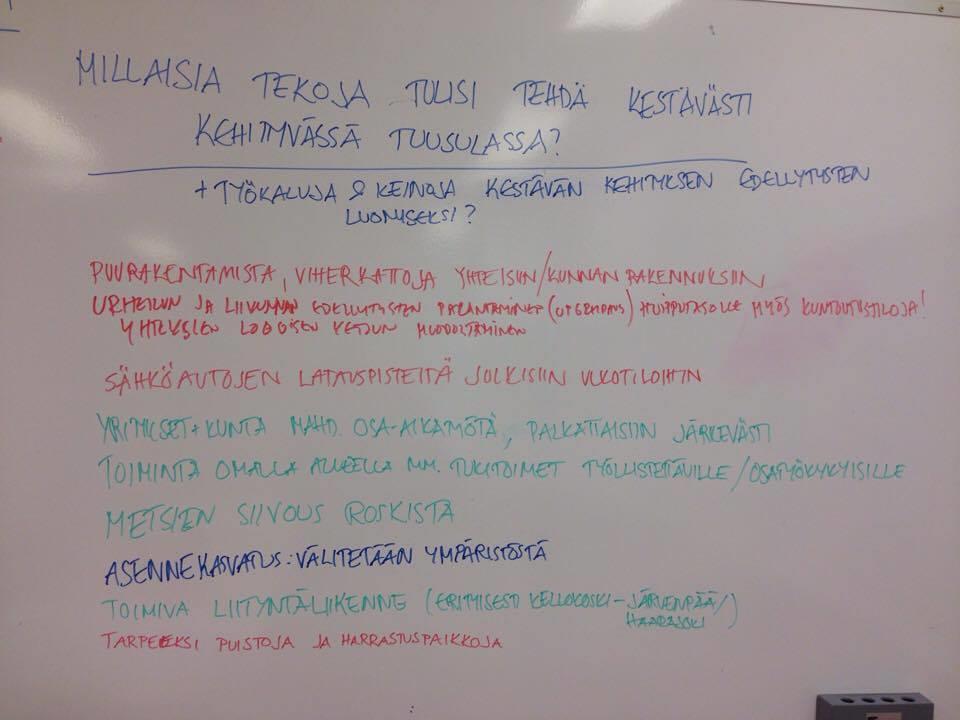 MILLAISIA TEKOJA TULISI TEHDÄ KESTÄVÄSTI
KEHITTYVÄSSÄ TUUSULASSA?
+ TYÖKALUJA & KEINOJA KESTÄVÄN KEHITYKSEN EDELLYTYSTEN
LUOMISEKSI?
PUURAKENTAMISTA, VIHERKATTOJA YHTEISIIN/KUNNAN RAKENNUKSIIN
URHEILUN JA LIIKUNNAN EDELLYTYSTEN PARANTAMINEN HUIPPUTASOLLE MYÖS KUNTOUTUSTILOJA!
YHTEYKSIEN LOOGISEN KETJUN MUODOSTAMINEN
SÄHKÖAUTOJEN LATAUSPISTEITÄ JULKISIIN ULKOTILOIHIN
YRITYKSET + KUNTA MAHD. OSA-AIKATYÖTÄ, PALKATTAISIIN JÄRKEVÄSTI
TOIMINTA OMALLA ALUEELLA MM. TUKITOIMET TYÖLLISTETTÄVILLE/OSATYÖKYKYISILLE
METSIEN SIIVOUS ROSKISTA
ASENNEKASVATUS: VÄLITETÄÄN YMPÄRISTÖSTÄ
TOIMIVA LIITYNTÄLIIKENNE (ERITYISESTI KELLOKOSKI-JÄRVENPÄÄ/
HAARAJOKI)
TARPEEKSI PUISTOJA JA HARRASTUSPAIKKOJA